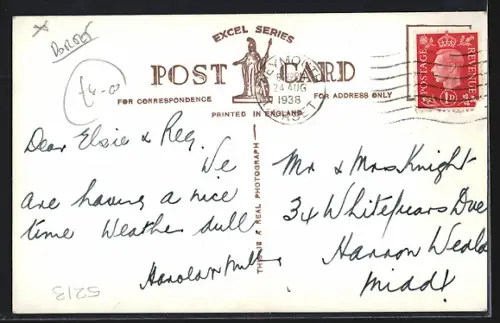 x
DORSET
£4-0
EXCEL SERIES
POST CARD
FOR CORRESPONDENCE
FOR ADDRESS ONLY
PRINTED IN ENGLAND
24 AUG
1938
POSTAGE
REVENUE
1D
THIS IS A REAL PHOTOGRAPH
Dear Elsie & Reg.
We
are having a nice
time Weather dull
Mr & Mrs Knight
34 Whitefriars Dve
Harrow Weald
Middx
5213